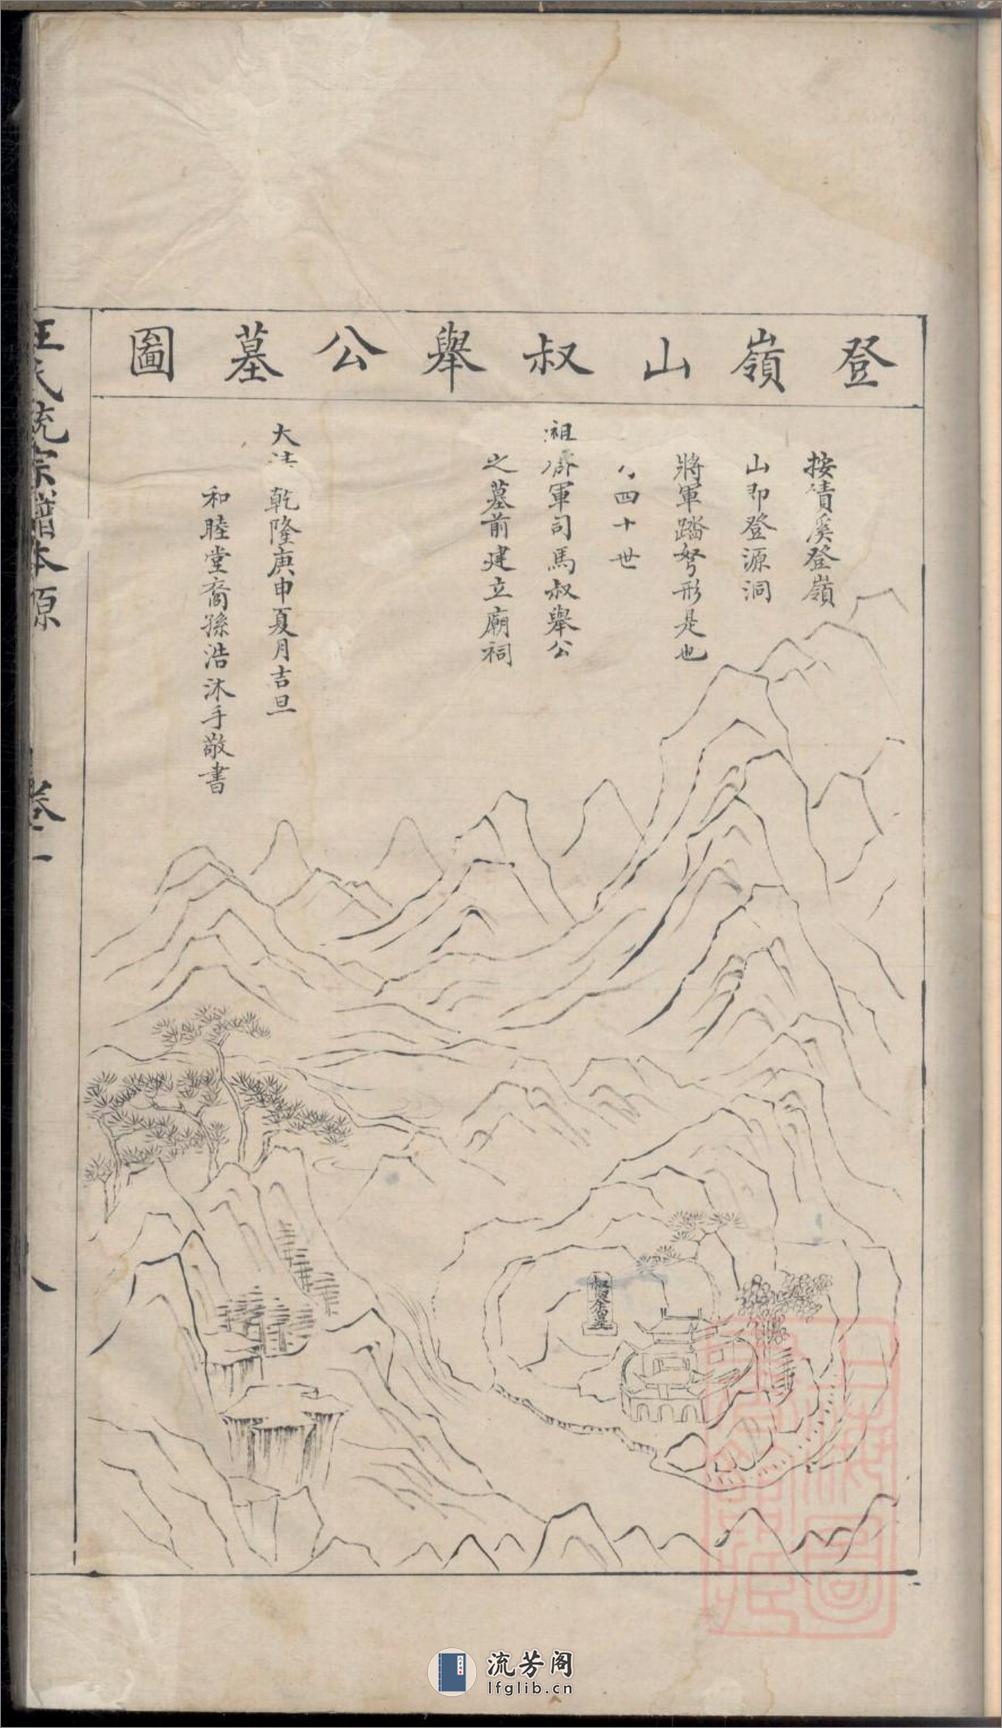 登嶺山叔舉公墓圖
按績溪登嶺
山即登源洞
將軍踏弩形是也
四十世
祖 軍司馬叔舉公
之墓前建立廟祠
大清乾隆庚申夏月吉旦
和睦堂裔孫浩沐手敬書
叔舉公墓
汪氏統宗譜本源
卷一
八
流芳阁
lfglib.cn